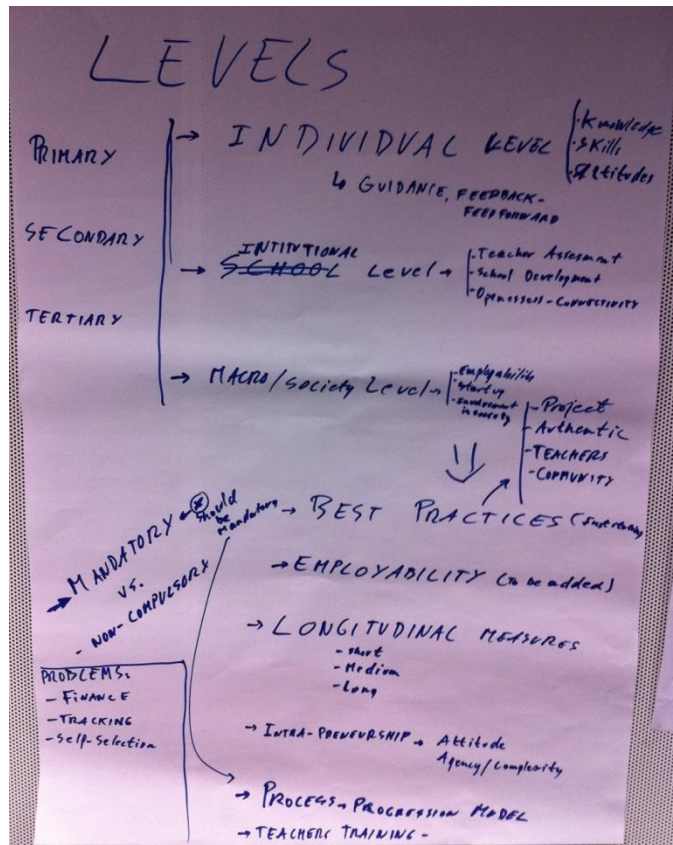 LEVELS
PRIMARY
SECONDARY
TERTIARY
→ INDIVIDUAL LEVEL
- Knowledge
- Skills
- Attitudes
↳ GUIDANCE, FEEDBACK-
FEEDFORWARD
INTITUTIONAL
→ SCHOOL Level →
- Teacher Assesment
- School Development
- Openessess - CONNECTIVITY
→ MACRO/Society Level →
- Employability
- Start up
- Involvement
in society
- Project
- Authentic
- TEACHERS
- COMMUNITY
→ MANDATORY
vs.
- NON-COMPULSORY
should
be
Mandatory
→ BEST PRACTICES
→ EMPLOYABILITY (to be added)
→ LONGITUDINAL MEASURES
- short
- Medium
- Long
PROBLEMS:
- FINANCE
- TRACKING
- Self-Selection
→ INTRA-PRENEURSHIP → Attitude
Agency/Complexity
→ PROCESS → PROGRESSION MODEL
→ TEACHERS TRAINING -